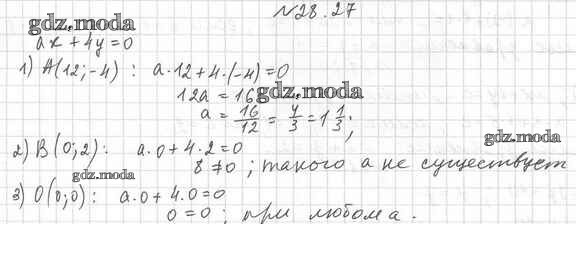 №28.27
gdz.moda
ax + 4y = 0
1) A(12; -4) : a·12 + 4·(-4) = 0
12a = 16 gdz.moda
a = 16/12 = 4/3 = 1 1/3;
gdz.moda
2) B(0; 2) : a·0 + 4·2 = 0
8 ≠ 0 ; такого a не существует
gdz.moda
3) O(0; 0) : a·0 + 4·0 = 0
0 = 0 ; при любом a.